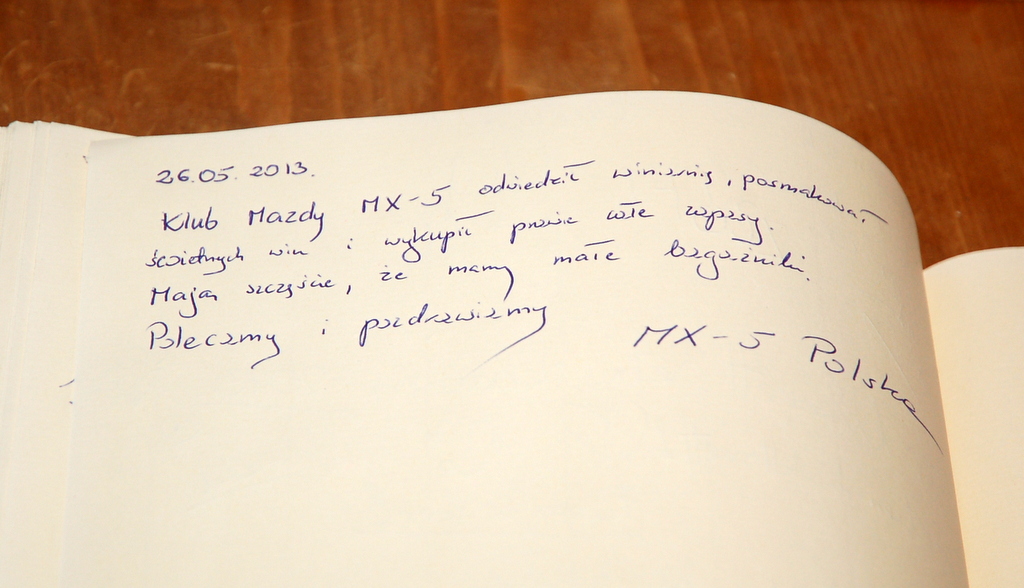 26.05.2013.
Klub Mazdy MX-5 odwiedził winiarnię, posmakował
świetnych win i wykupił prawie całe zapasy.
Mają szczęście, że mamy małe bagażniki.
Polecamy i pozdrawiamy
MX-5 Polska